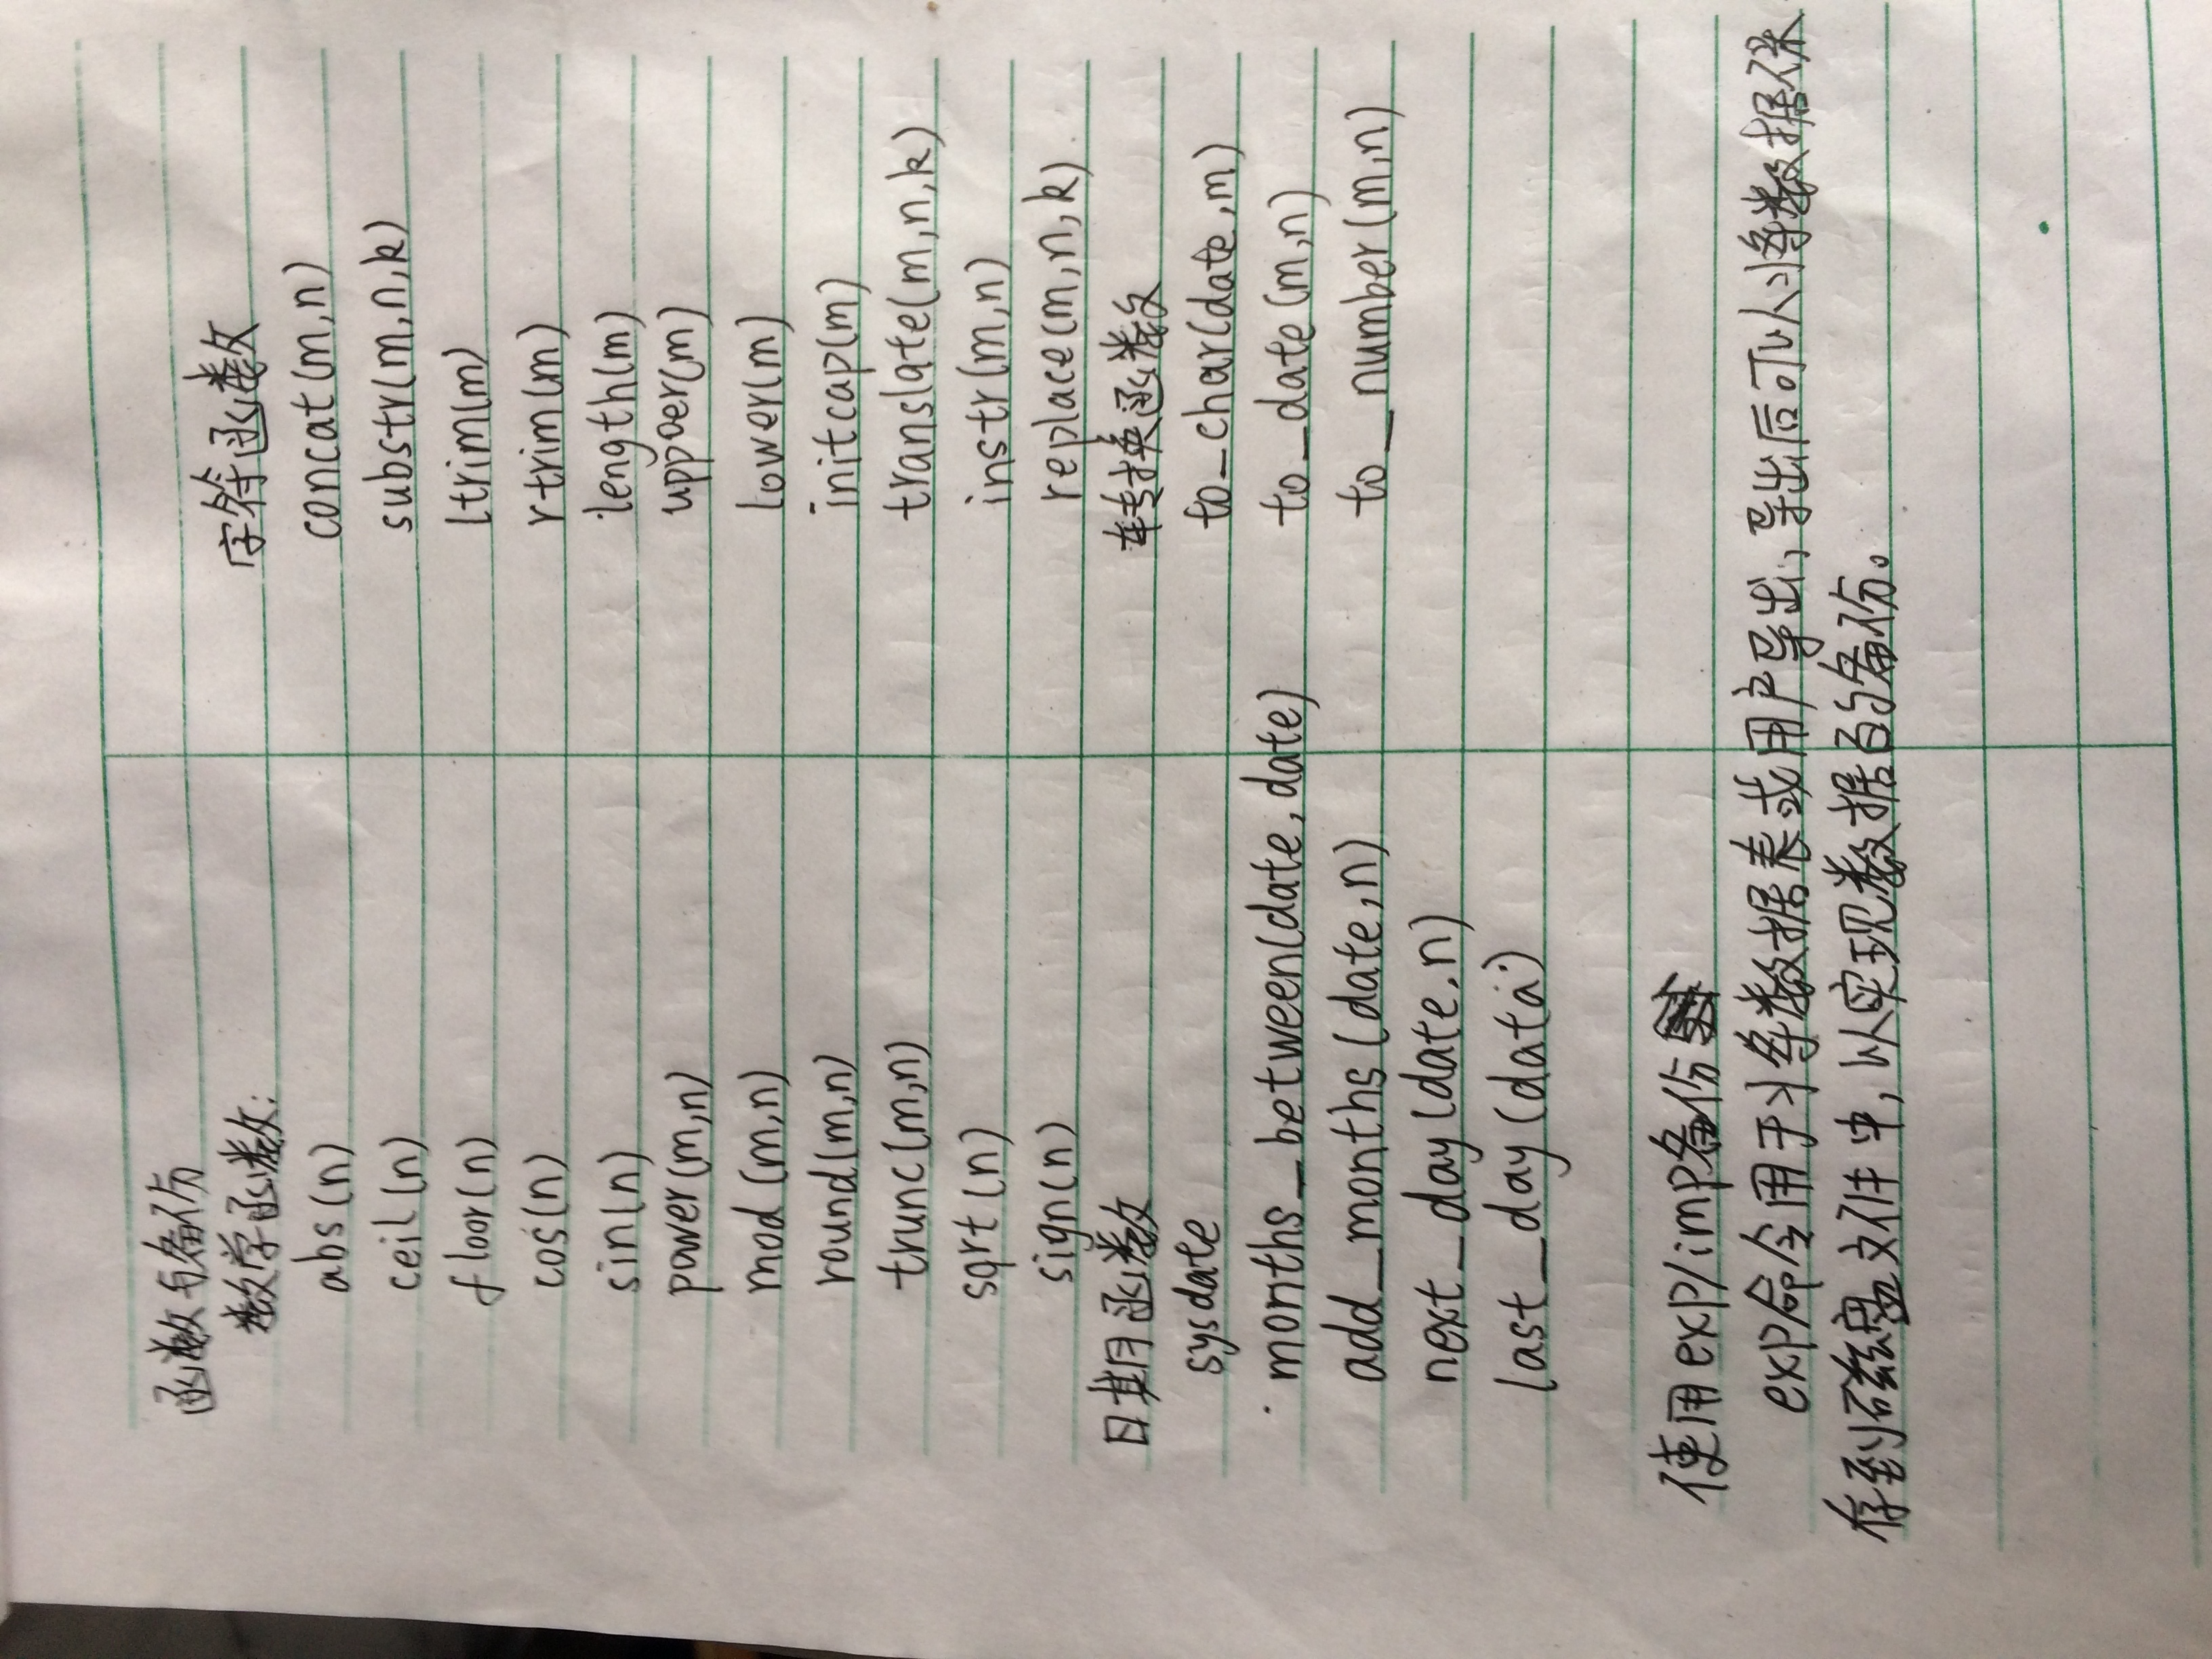 函数与备份
数学函数:
abs(n)
ceil(n)
floor(n)
cos(n)
sin(n)
power(m,n)
mod(m,n)
round(m,n)
trunc(m,n)
sqrt(n)
sign(n)
日期函数
sysdate
months_between(date,date)
add_months(date,n)
next_day(date,n)
last_day(data)
字符函数
concat(m,n)
substr(m,n,k)
ltrim(m)
rtrim(m)
length(m)
upper(m)
lower(m)
initcap(m)
translate(m,n,k)
instr(m,n)
replace(m,n,k)
转换函数
to_char(date,m)
to_date(m,n)
to_number(m,n)
使用exp/imp备份
exp命令用于将数据表或用户导出,导出后可以将数据保
存到磁盘文件中,以实现数据的备份。